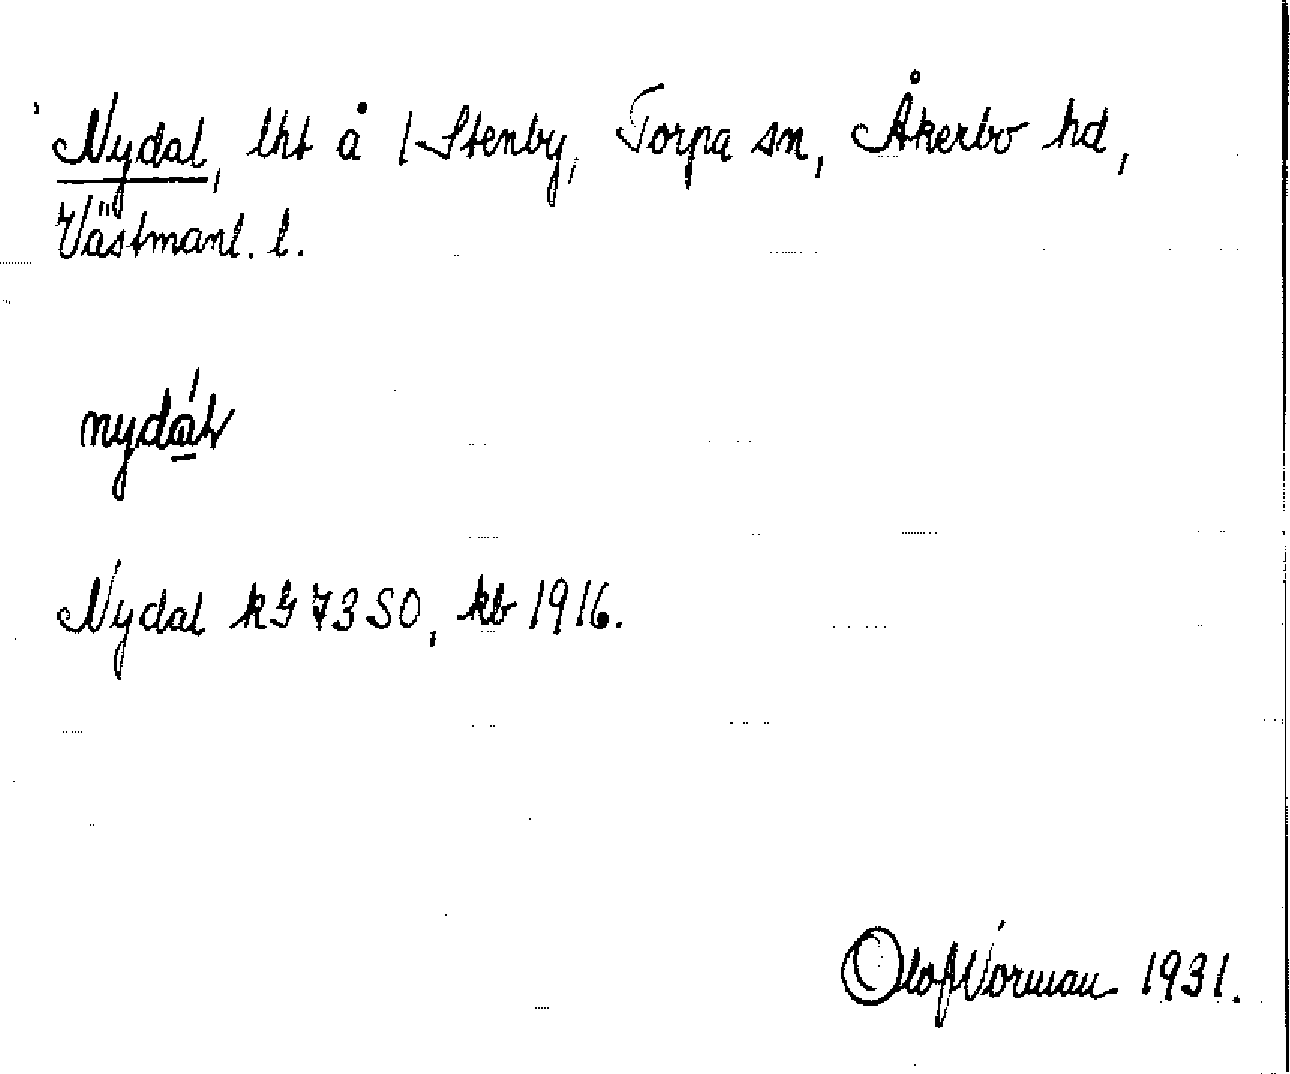 Nydal, lht å 1 Stenby, Torpa sn, Åkerbo hd,
Västmanl. l.
nydáḷ
Nydal kG 73 SO, kb 1916.
Olof Norman 1931.